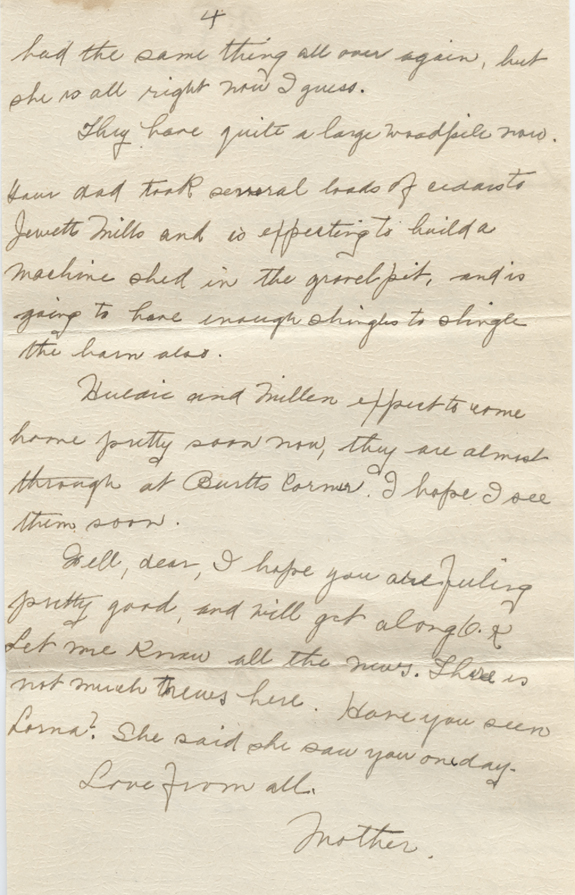 4
had the same thing all over again, but
she is all right now I guess.
They have quite a large woodpile now.
Your dad took several loads of cedars to
Jewetts Mills and is expecting to build a
machine shed in the gravel pit, and is
going to have enough shingles to shingle
the barn also.
and Millen expect to come
home pretty soon now, they are almost
through at Burtts Corner. I hope I see
them soon.
Well, dear, I hope you are feeling
pretty good, and will get along O.K
Let me know all the news. There is
not much news here. Have you seen
Lorna? She said she saw you one day.
Love from all.
Mother.